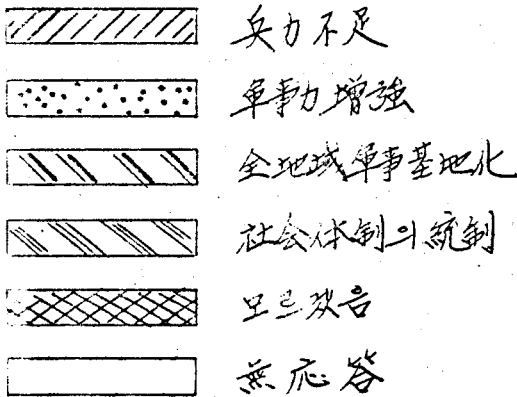 兵力不足
軍事力增強
全地域軍事基地化
社会体制의統制
모르겠음
無応答